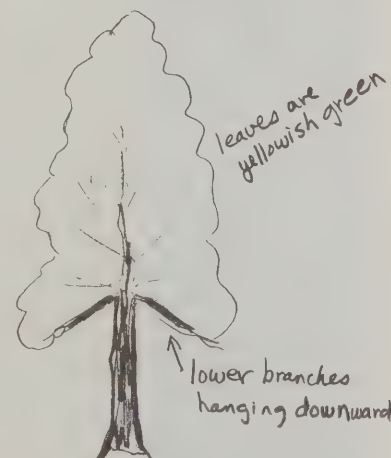 leaves are
yellowish green
lower branches
hanging downward